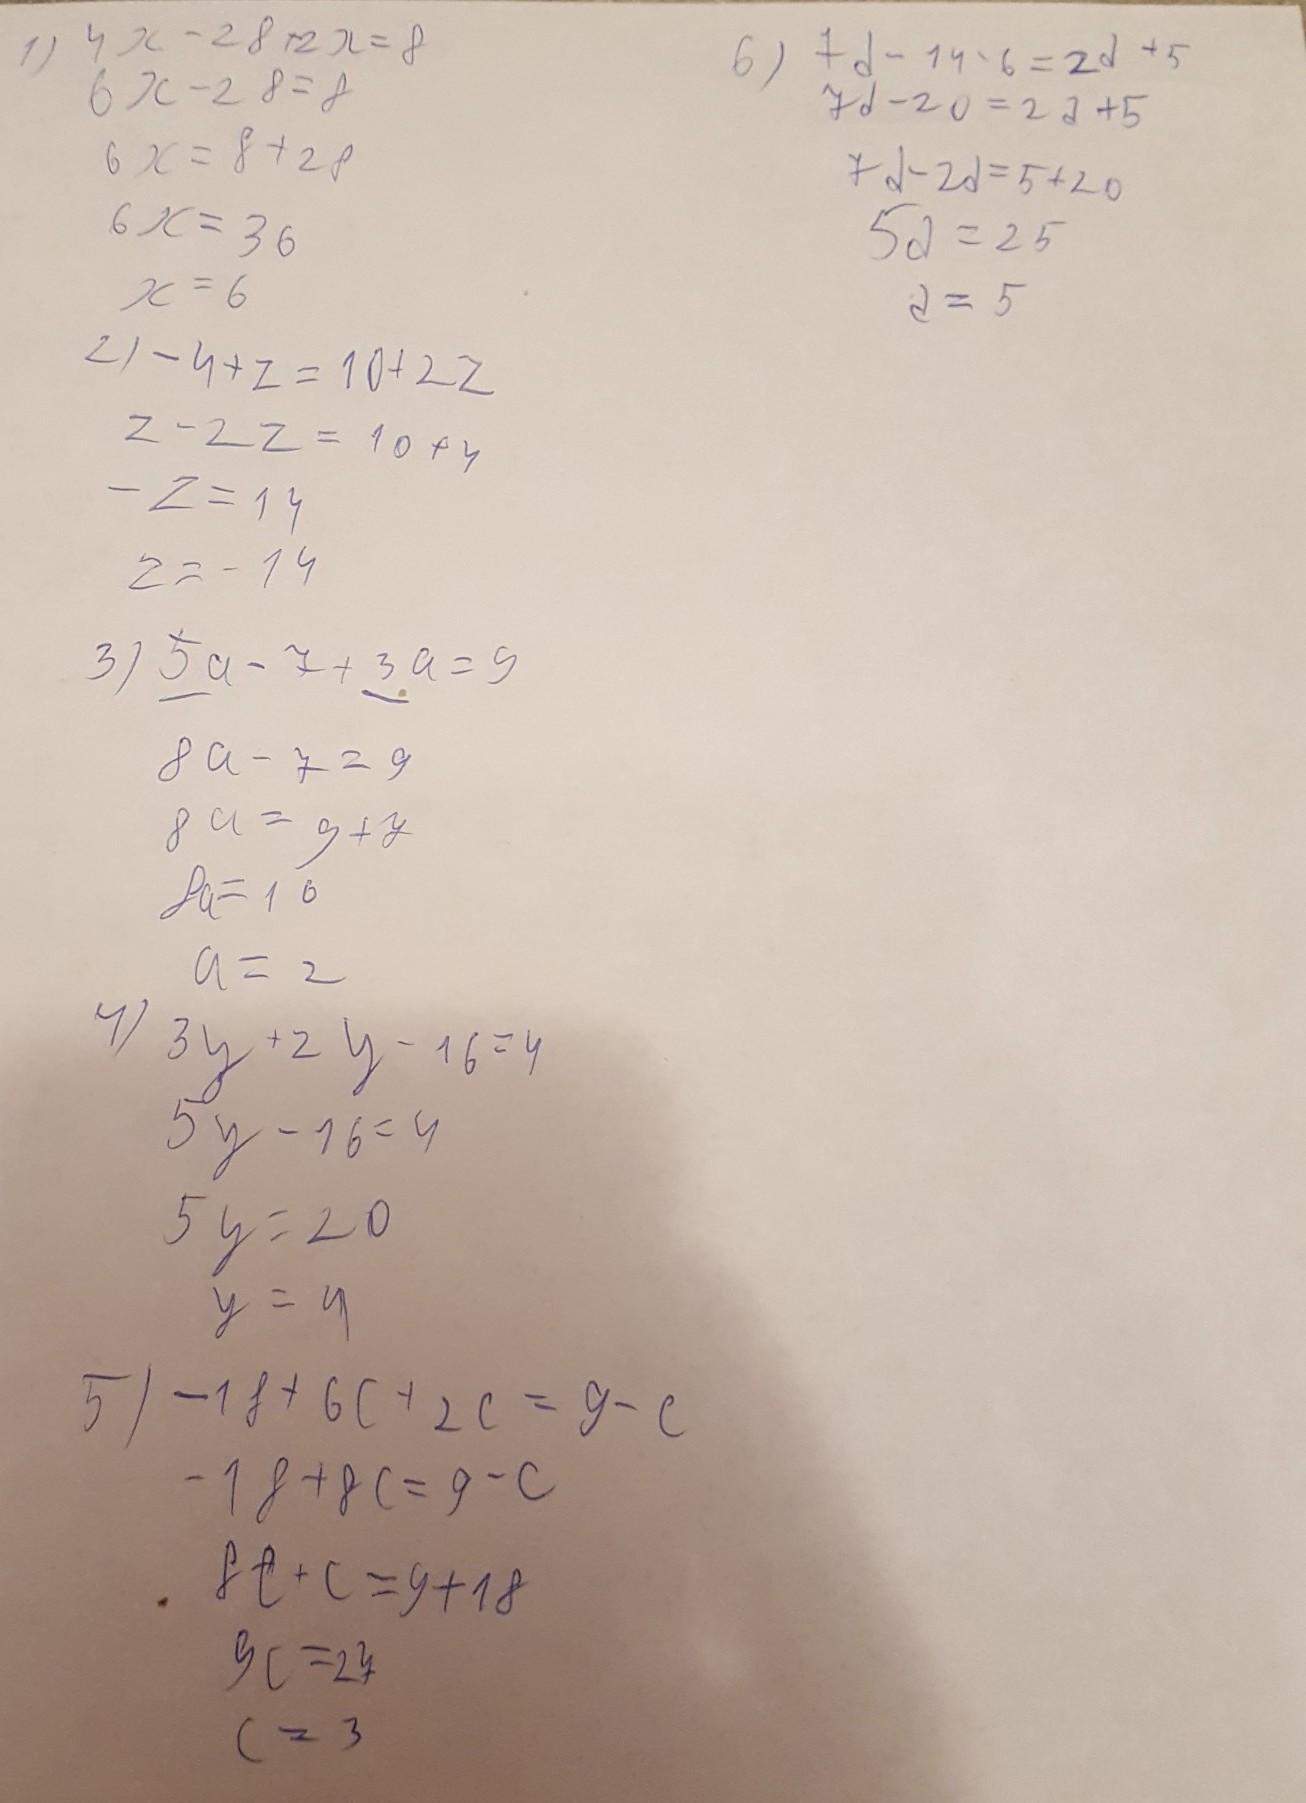 1) 4x-28+2x=8
6x-28=8
6x=8+28
6x=36
x=6
2) -4+z=10+2z
z-2z=10+4
-z=14
z=-14
3) 5a-7+3a=9
8a-7=9
8a=9+7
8a=16
a=2
4) 3y+2y-16=4
5y-16=4
5y=20
y=4
5) -18+6c+2c=9-c
-18+8c=9-c
8c+c=9+18
9c=27
c=3
6) 7d-14-6=2d+5
7d-20=2d+5
7d-2d=5+20
5d=25
d=5